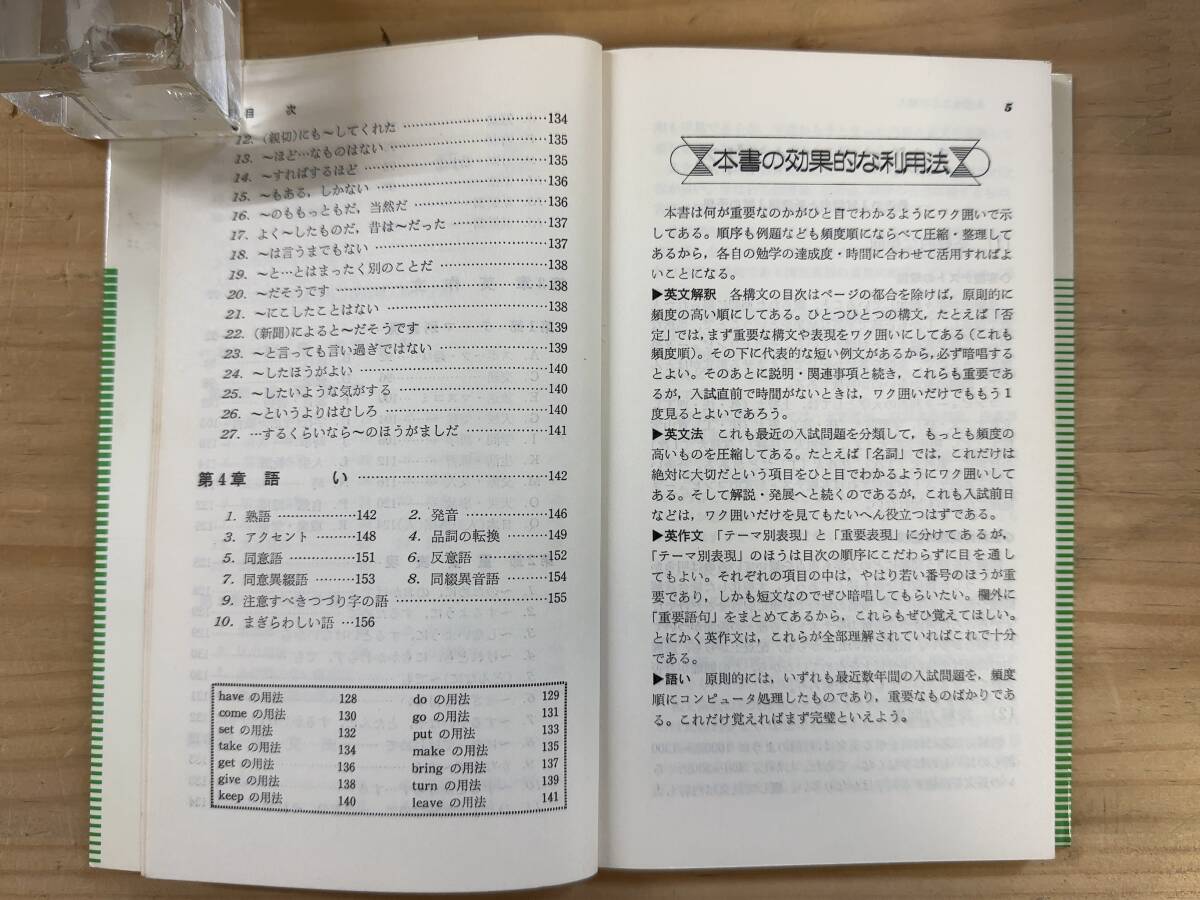 目 次
12. (親切)にも～してくれた ……134
13. ～ほど…なものはない ……135
14. ～すればするほど ……135
15. ～もある，しかない ……136
16. ～のももっともだ，当然だ ……136
17. よく～したものだ，昔は～だった ……137
18. ～は言うまでもない ……137
19. ～と…とはまったく別のことだ ……138
20. ～だそうです ……138
21. ～にこしたことはない ……138
22. (新聞)によると～だそうです ……139
23. ～と言っても言い過ぎではない ……139
24. ～したほうがよい ……140
25. ～したいような気がする ……140
26. ～というよりはむしろ ……140
27. …するくらいなら～のほうがましだ ……141
第4章 語 い ……142
1. 熟語 ……142 2. 発音 ……146
3. アクセント ……148 4. 品詞の転換 ……149
5. 同意語 ……151 6. 反意語 ……152
7. 同意異綴語 ……153 8. 同綴異音語 ……154
9. 注意すべきつづり字の語 ……155
10. まぎらわしい語 …156
have の用法 128 do の用法 129
come の用法 130 go の用法 131
set の用法 132 put の用法 133
take の用法 134 make の用法 135
get の用法 136 bring の用法 137
give の用法 138 turn の用法 139
keep の用法 140 leave の用法 141
5
本書の効果的な利用法
本書は何が重要なのかがひと目でわかるようにワク囲いで示
してある。順序も例題なども頻度順にならべて圧縮・整理して
あるから，各自の勉学の達成度・時間に合わせて活用すればよ
いことになる。
▶英文解釈 各構文の目次はページの都合を除けば，原則的に
頻度の高い順にしてある。ひとつひとつの構文，たとえば「否
定」では，まず重要な構文や表現をワク囲いにしてある（これも
頻度順）。その下に代表的な短い例文があるから，必ず暗唱する
とよい。そのあとに説明・関連事項と続き，これらも重要であ
るが，入試直前で時間がないときは，ワク囲いだけでももう1
度見るとよいであろう。
▶英文法 これも最近の入試問題を分類して，もっとも頻度の
高いものを圧縮してある。たとえば「名詞」では，これだけは
絶対に大切だという項目をひと目でわかるようにワク囲いして
ある。そして解説・発展へと続くのであるが，これも入試前日
などは，ワク囲いだけを見てもたいへん役立つはずである。
▶英作文 「テーマ別表現」と「重要表現」に分けてあるが，
「テーマ別表現」のほうは目次の順序にこだわらずに目を通し
てもよい。それぞれの項目の中は，やはり若い番号のほうが重
要であり，しかも短文なのでぜひ暗唱してもらいたい。欄外に
「重要語句」をまとめてあるから，これらもぜひ覚えてほしい。
とにかく英作文は，これらが全部理解されていればこれで十分
である。
▶語い 原則的には，いずれも最近数年間の入試問題を，頻度
順にコンピュータ処理したものであり，重要なものばかりであ
る。これだけ覚えればまず完璧といえよう。